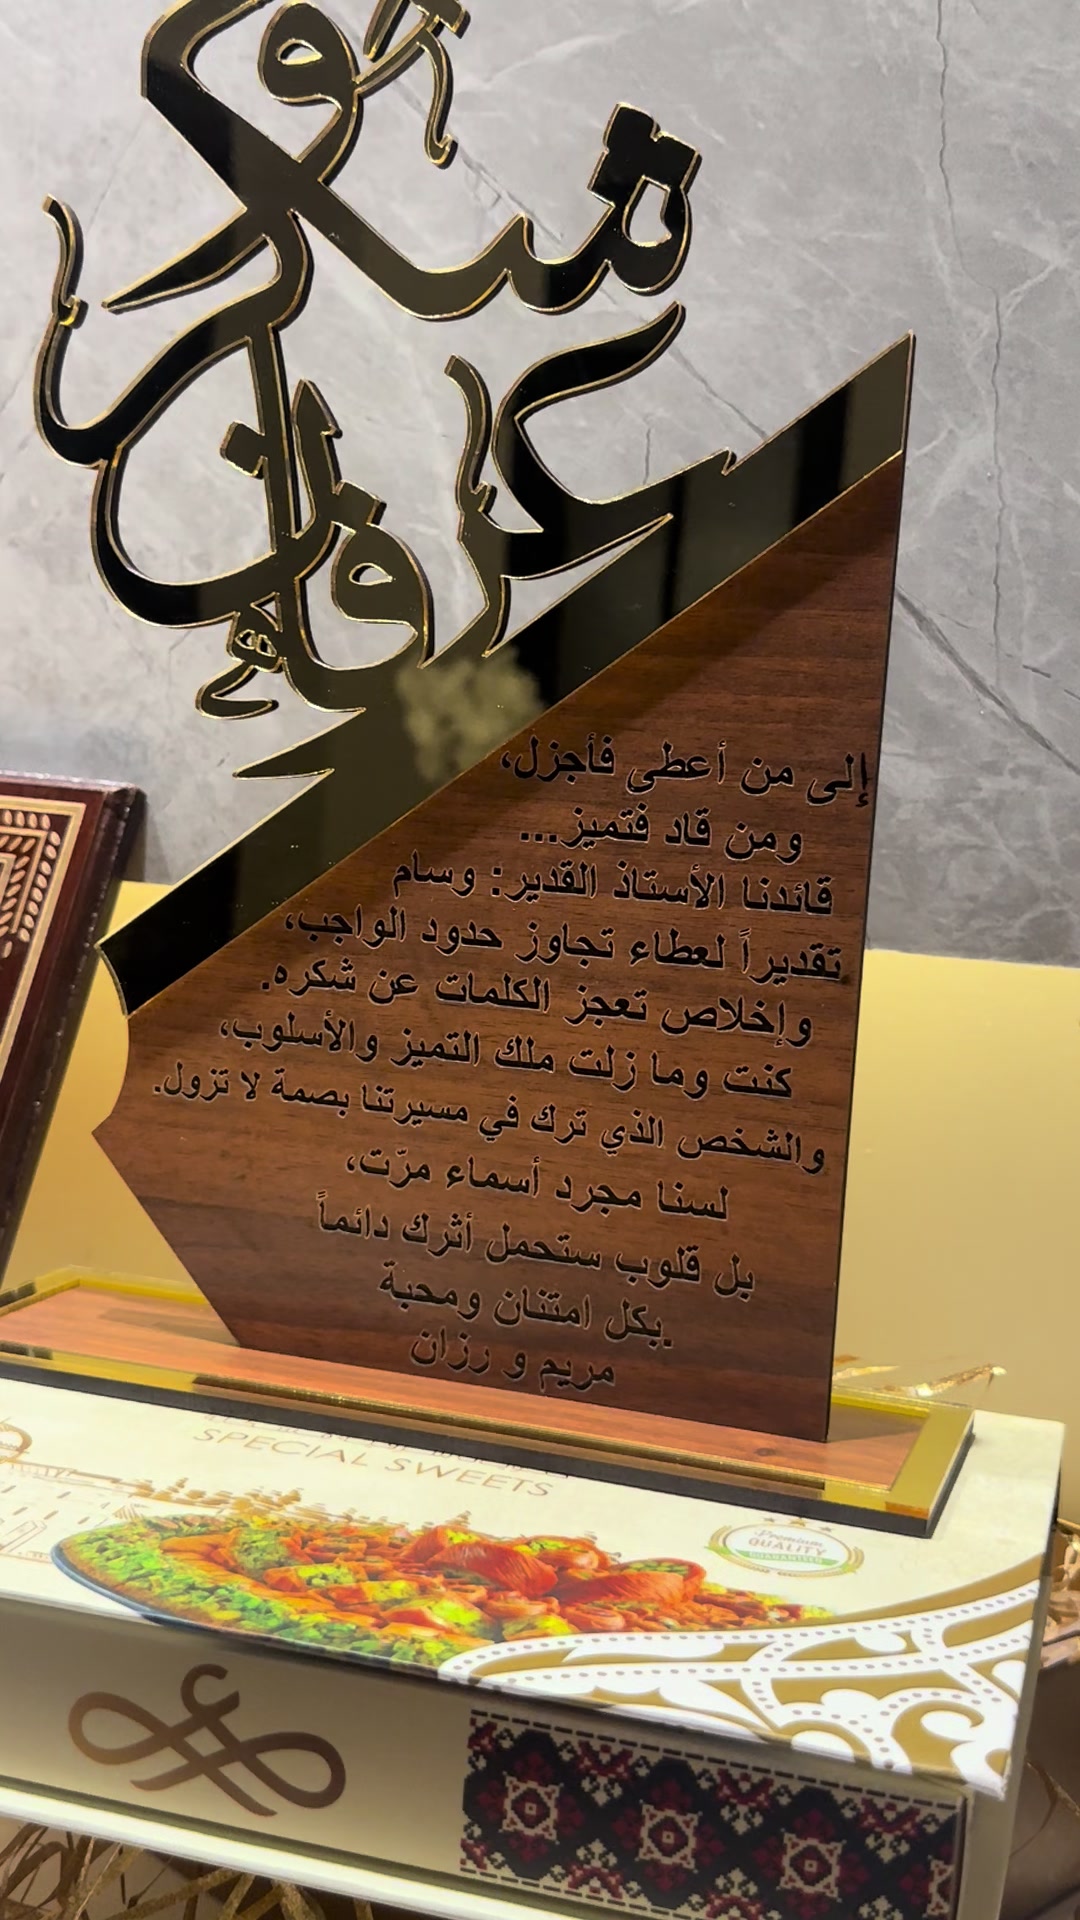 شكر
وعرفان
إلى من أعطى فأجزل،
ومن قاد فتميز...
قائدنا الأستاذ القدير: وسام
تقديراً لعطاء تجاوز حدود الواجب،
وإخلاص تعجز الكلمات عن شكره.
كنت وما زلت ملك التميز والأسلوب،
والشخص الذي ترك في مسيرتنا بصمة لا تزول.
لسنا مجرد أسماء مرّت،
بل قلوب ستحمل أثرك دائماً
بكل امتنان ومحبة.
مريم و رزان
SPECIAL SWEETS
Premium
QUALITY
GUARANTEED